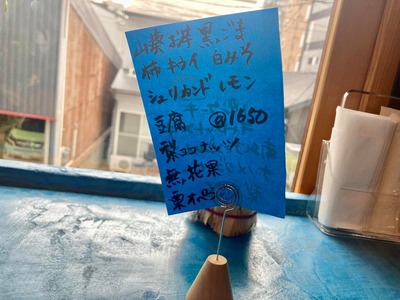 山葵 抹茶 黒ごま
柿 キウイ 白みそ
シュリカンド レモン
豆腐 @1650
梨ココナッツ
無花果
栗オペラ